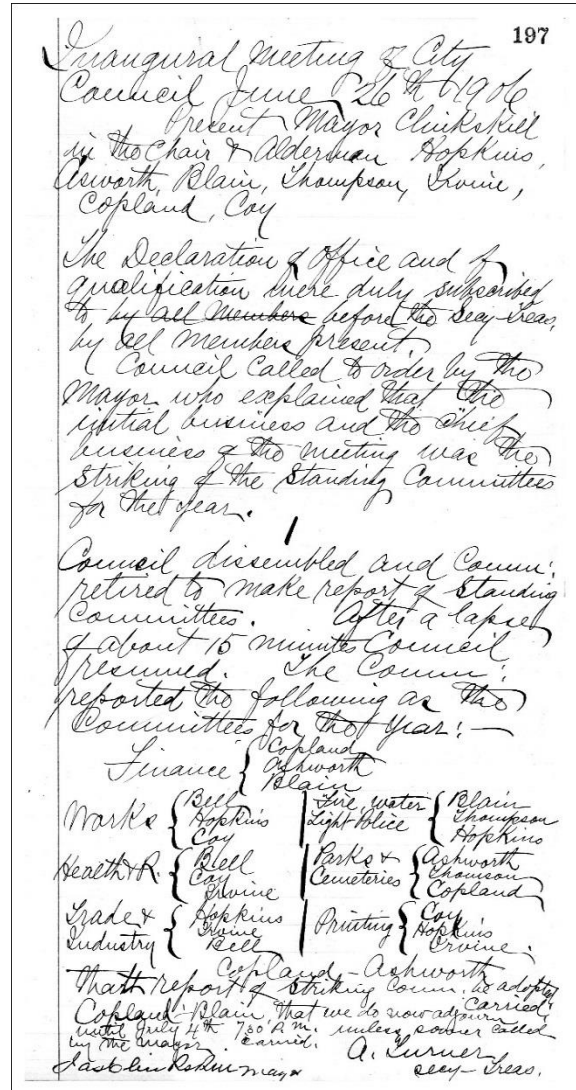 197
Inaugural Meeting of City
Council June 26th 1906
Present Mayor Clinkskill
in the Chair & Alderman Hopkins,
Asworth, Blain, Thompson, Irvine,
Copland, Coy
The Declaration of Office and of
qualification were duly subscribed
to by all Members before the Secy-Treas,
by all members present.
Council called to order by the
Mayor who explained that the
initial business and the chief
business of the meeting was the
striking of the Standing Committees
for the year.
Council dissembled and Comm:
retired to make report of Standing
Committees. After a lapse
of about 15 minutes Council
resumed. The Comm:
reported the following as the
Committees for the Year:—
Finance { Copland
Ashworth
Blain
Works { Bell
Hopkins
Coy
Fire, water
Light Police { Blain
Thompson
Hopkins
Health & R. { Bell
Coy
Irvine
Parks &
Cemeteries { Ashworth
Thomson
Copland
Trade &
Industry { Hopkins
Irvine
Bell
Printing { Coy
Hopkins
Irvine.
Copland - Ashworth
That report of striking Comm. be adopted
Carried.
Copland-Blain, that we do now adjourn
until July 4th 7.30 P.M. unless sooner called
by the mayor. Carried.
A. Turner
Secy-Treas.
Jas Clinkskill Mayor